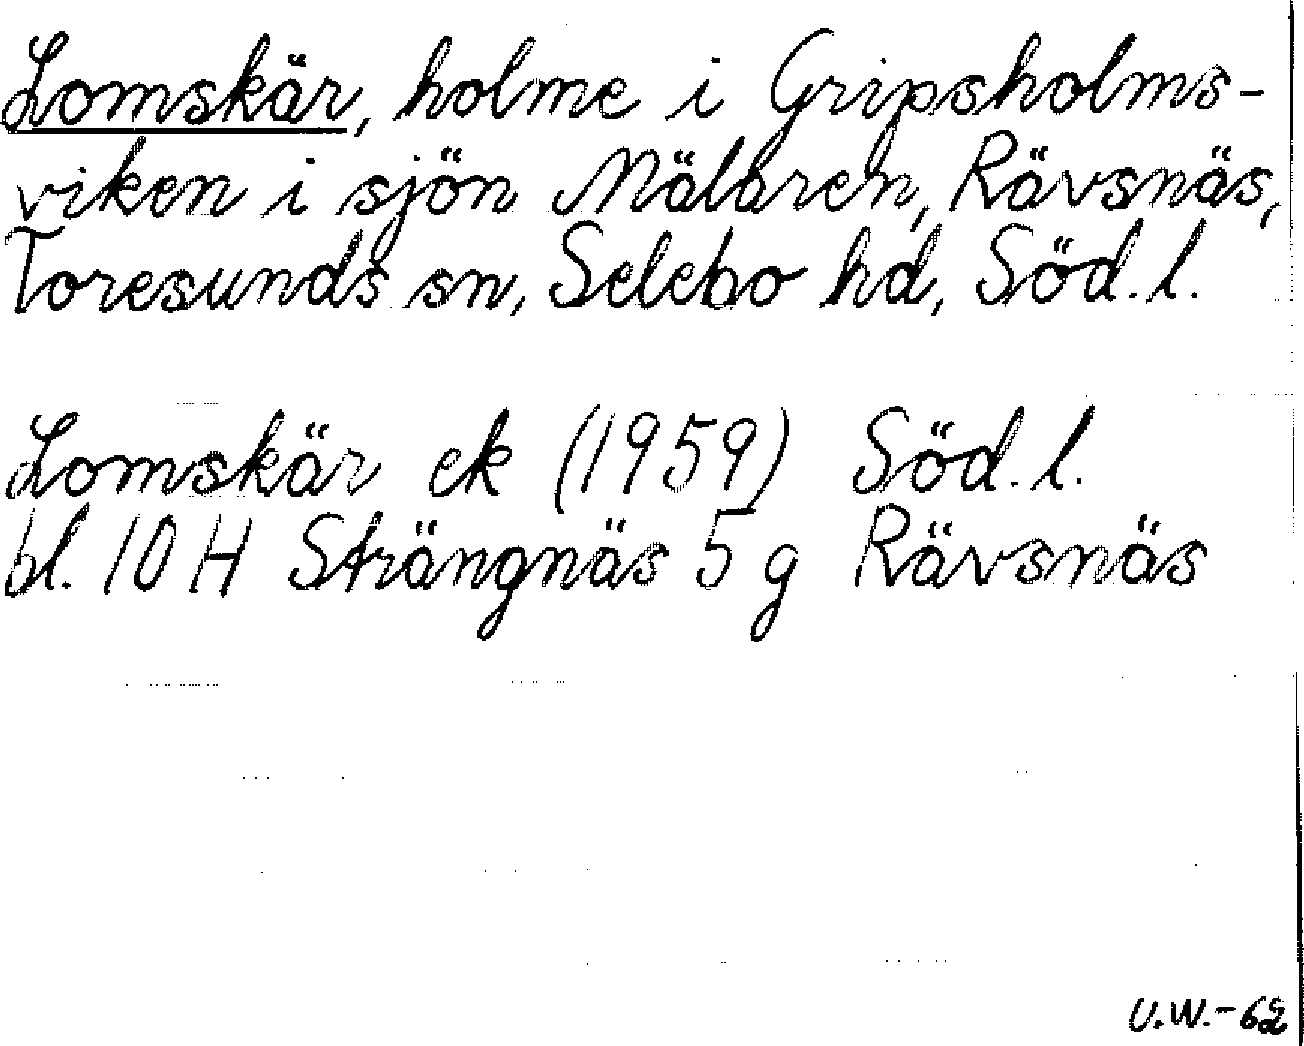 Lomskär, holme i Gripsholms-
viken i sjön Mälaren, Rävsnäs,
Toresunds sn, Selebo hd, Söd. l.
Lomskär ek (1959) Söd. l.
bl. 10 H Strängnäs 5 g Rävsnäs
U.W.-62